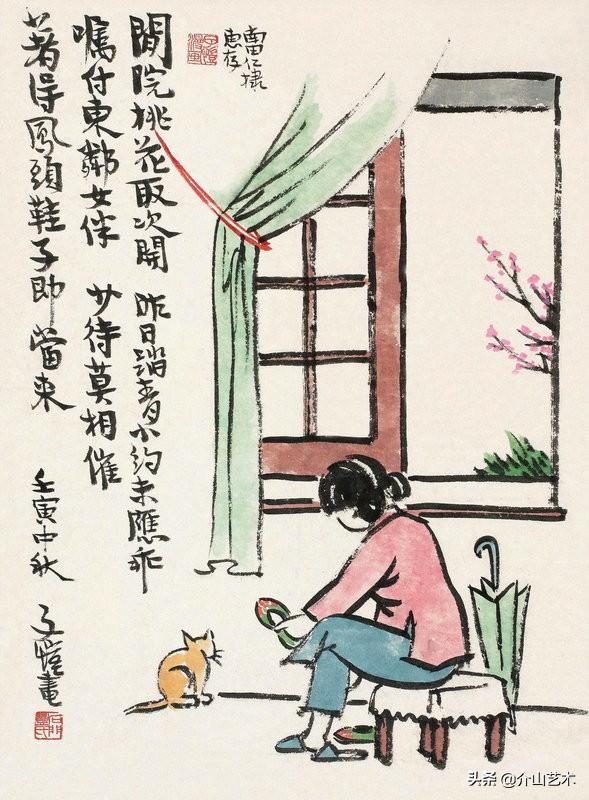 仁棣
惠存
閒院桃花取次開 昨日踏青小約未應乖
囑付東鄰女伴 少待莫相催
著得鳳頭鞋子即當來
壬寅中秋 子愷畫
石門豐氏
头条 @介山艺术